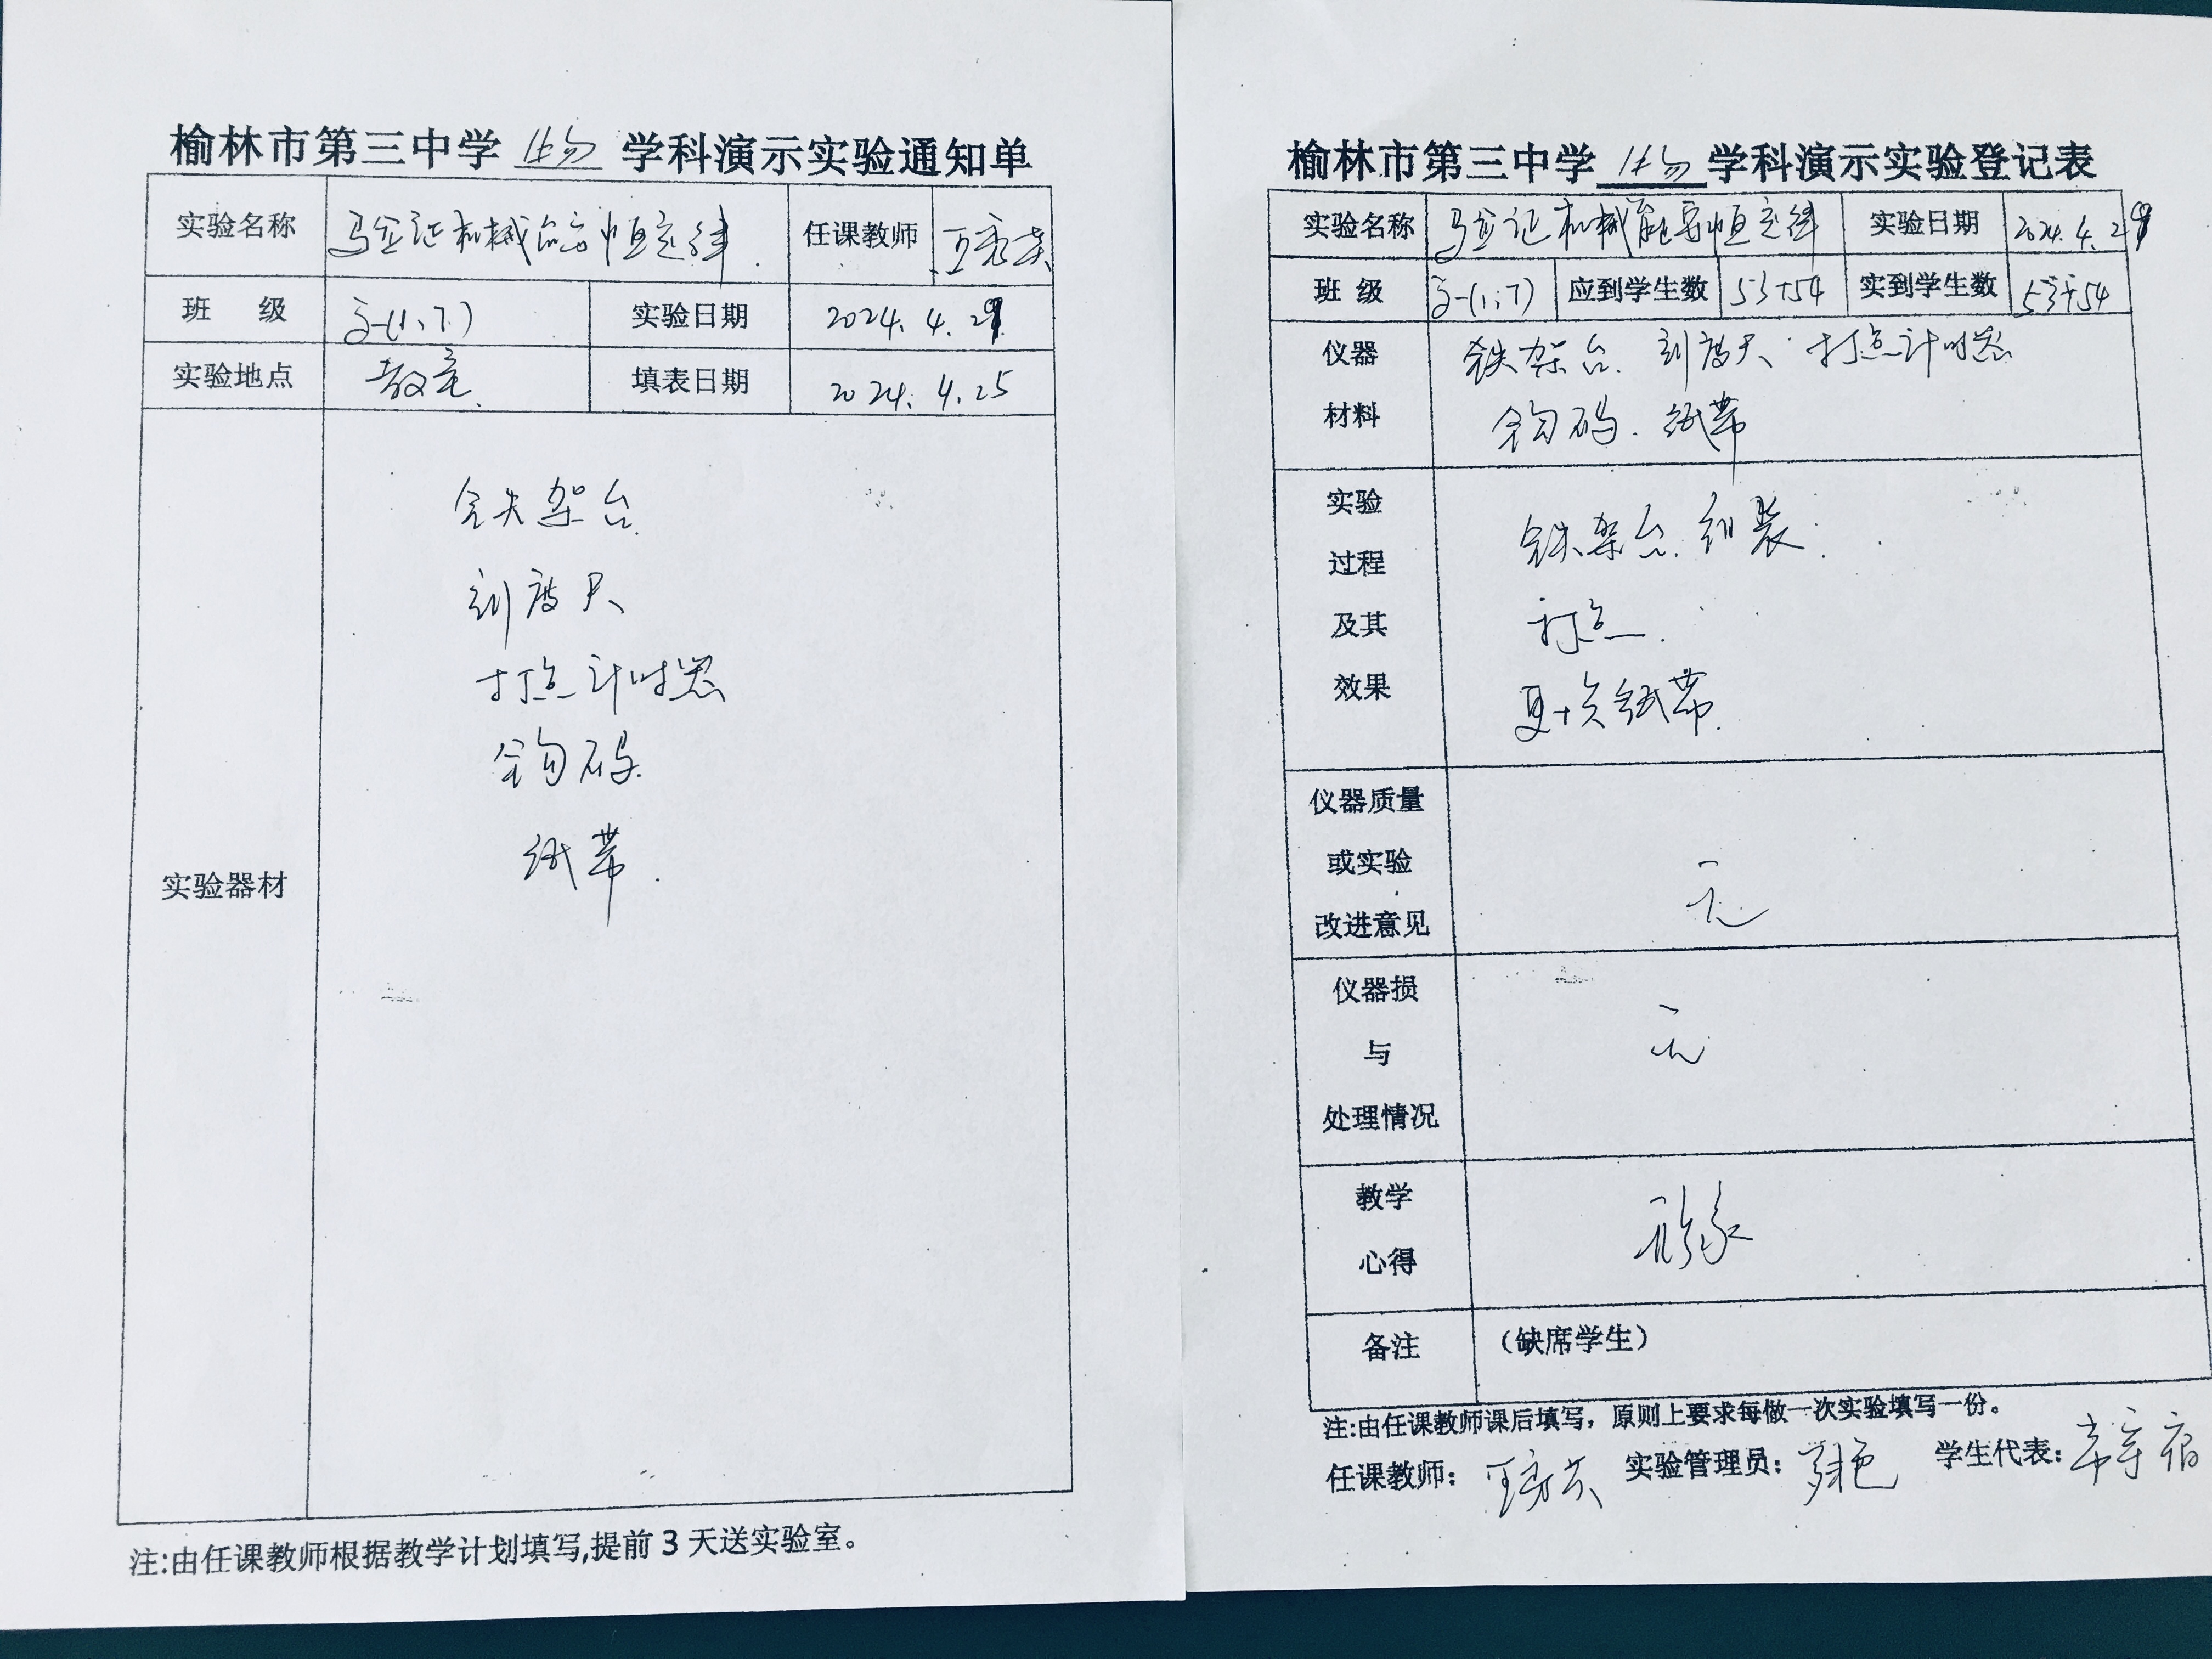 榆林市第三中学 生物 学科演示实验通知单
实验名称 验证机械能守恒定律. 任课教师 王秀芳
班 级 高一(1、7) 实验日期 2024.4.29
实验地点 教室. 填表日期 2024.4.25
实验器材
铁架台
刻度尺
打点计时器
钩码.
纸带.
注:由任课教师根据教学计划填写,提前3天送实验室。
榆林市第三中学 生物 学科演示实验登记表
实验名称 验证机械能守恒定律 实验日期 2024.4.29
班 级 高一(1;7) 应到学生数 53+54 实到学生数 53+54
仪器 铁架台. 刻度尺 打点计时器
材料 钩码. 纸带
实验 铁架台组装.
过程
及其 打点.
效果 更换纸带.
仪器质量
或实验 无
改进意见
仪器损
与 无
处理情况
教学
心得
备注 (缺席学生)
注:由任课教师课后填写，原则上要求每做一次实验填写一份。
任课教师: 王秀芳 实验管理员: 学生代表: